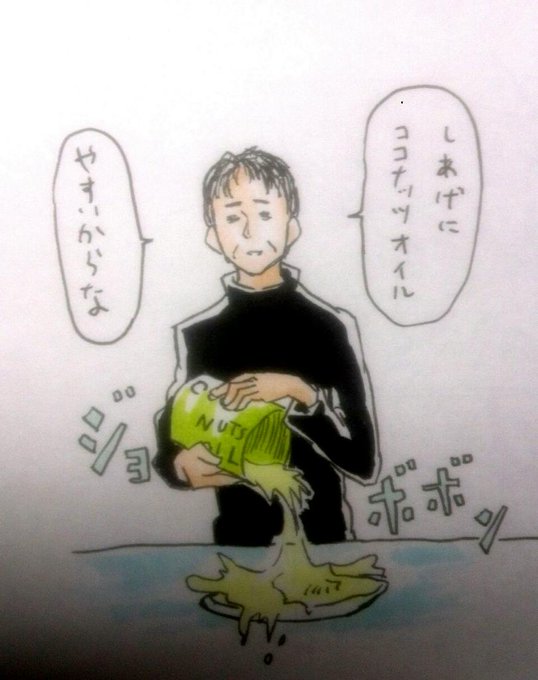 しあげに
ココナッツオイル
やすいからな
NUTS
ジョ
ボボン